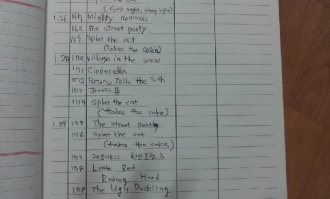 (Good night, sleep tight)
1.26 167 Mighty mammals
168 The street party
169 Splat the cat
(takes the cake)
1.28 170 Village in the snow
171 Cinderella
172 Benny Tells the Truth
173
174 Splat the cat
(takes the cake)
1.29 175 The street party
176 Splat the cat
(takes the cake)
177
178 Little Red
Riding Hood
179 The Ugly Duckling